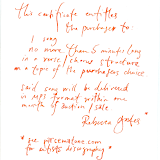 this certificate entitles
the purchaser to:
1 song
no more than 5 minutes long
in a verse/chorus structure
on a topic of the purchasers choice
said song will be delivered
in MP3 format within one
month of auction/sale.
Rebecca
* see
for artists discography *